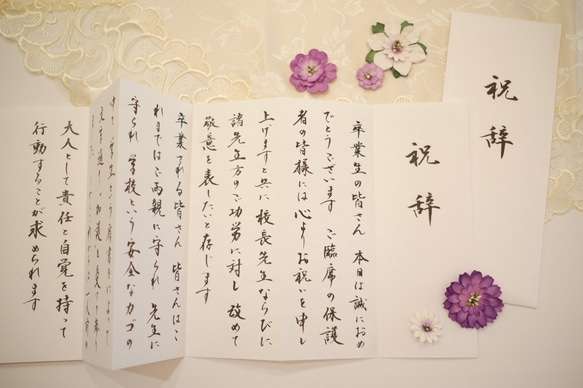 祝辞
祝辞
卒業生の皆さん 本日は誠におめ
でとうございます ご臨席の保護
者の皆様には心よりお祝いを申し
上げますと共に校長先生ならびに
諸先立方のご功労に対し 改めて
敬意を表したいと存じます
卒業される皆さん 皆さんはこ
れまではご両親に守られ 先生に
守られ 学校という安全なカゴの
大人として責任と自覚を持って
行動することが求められます